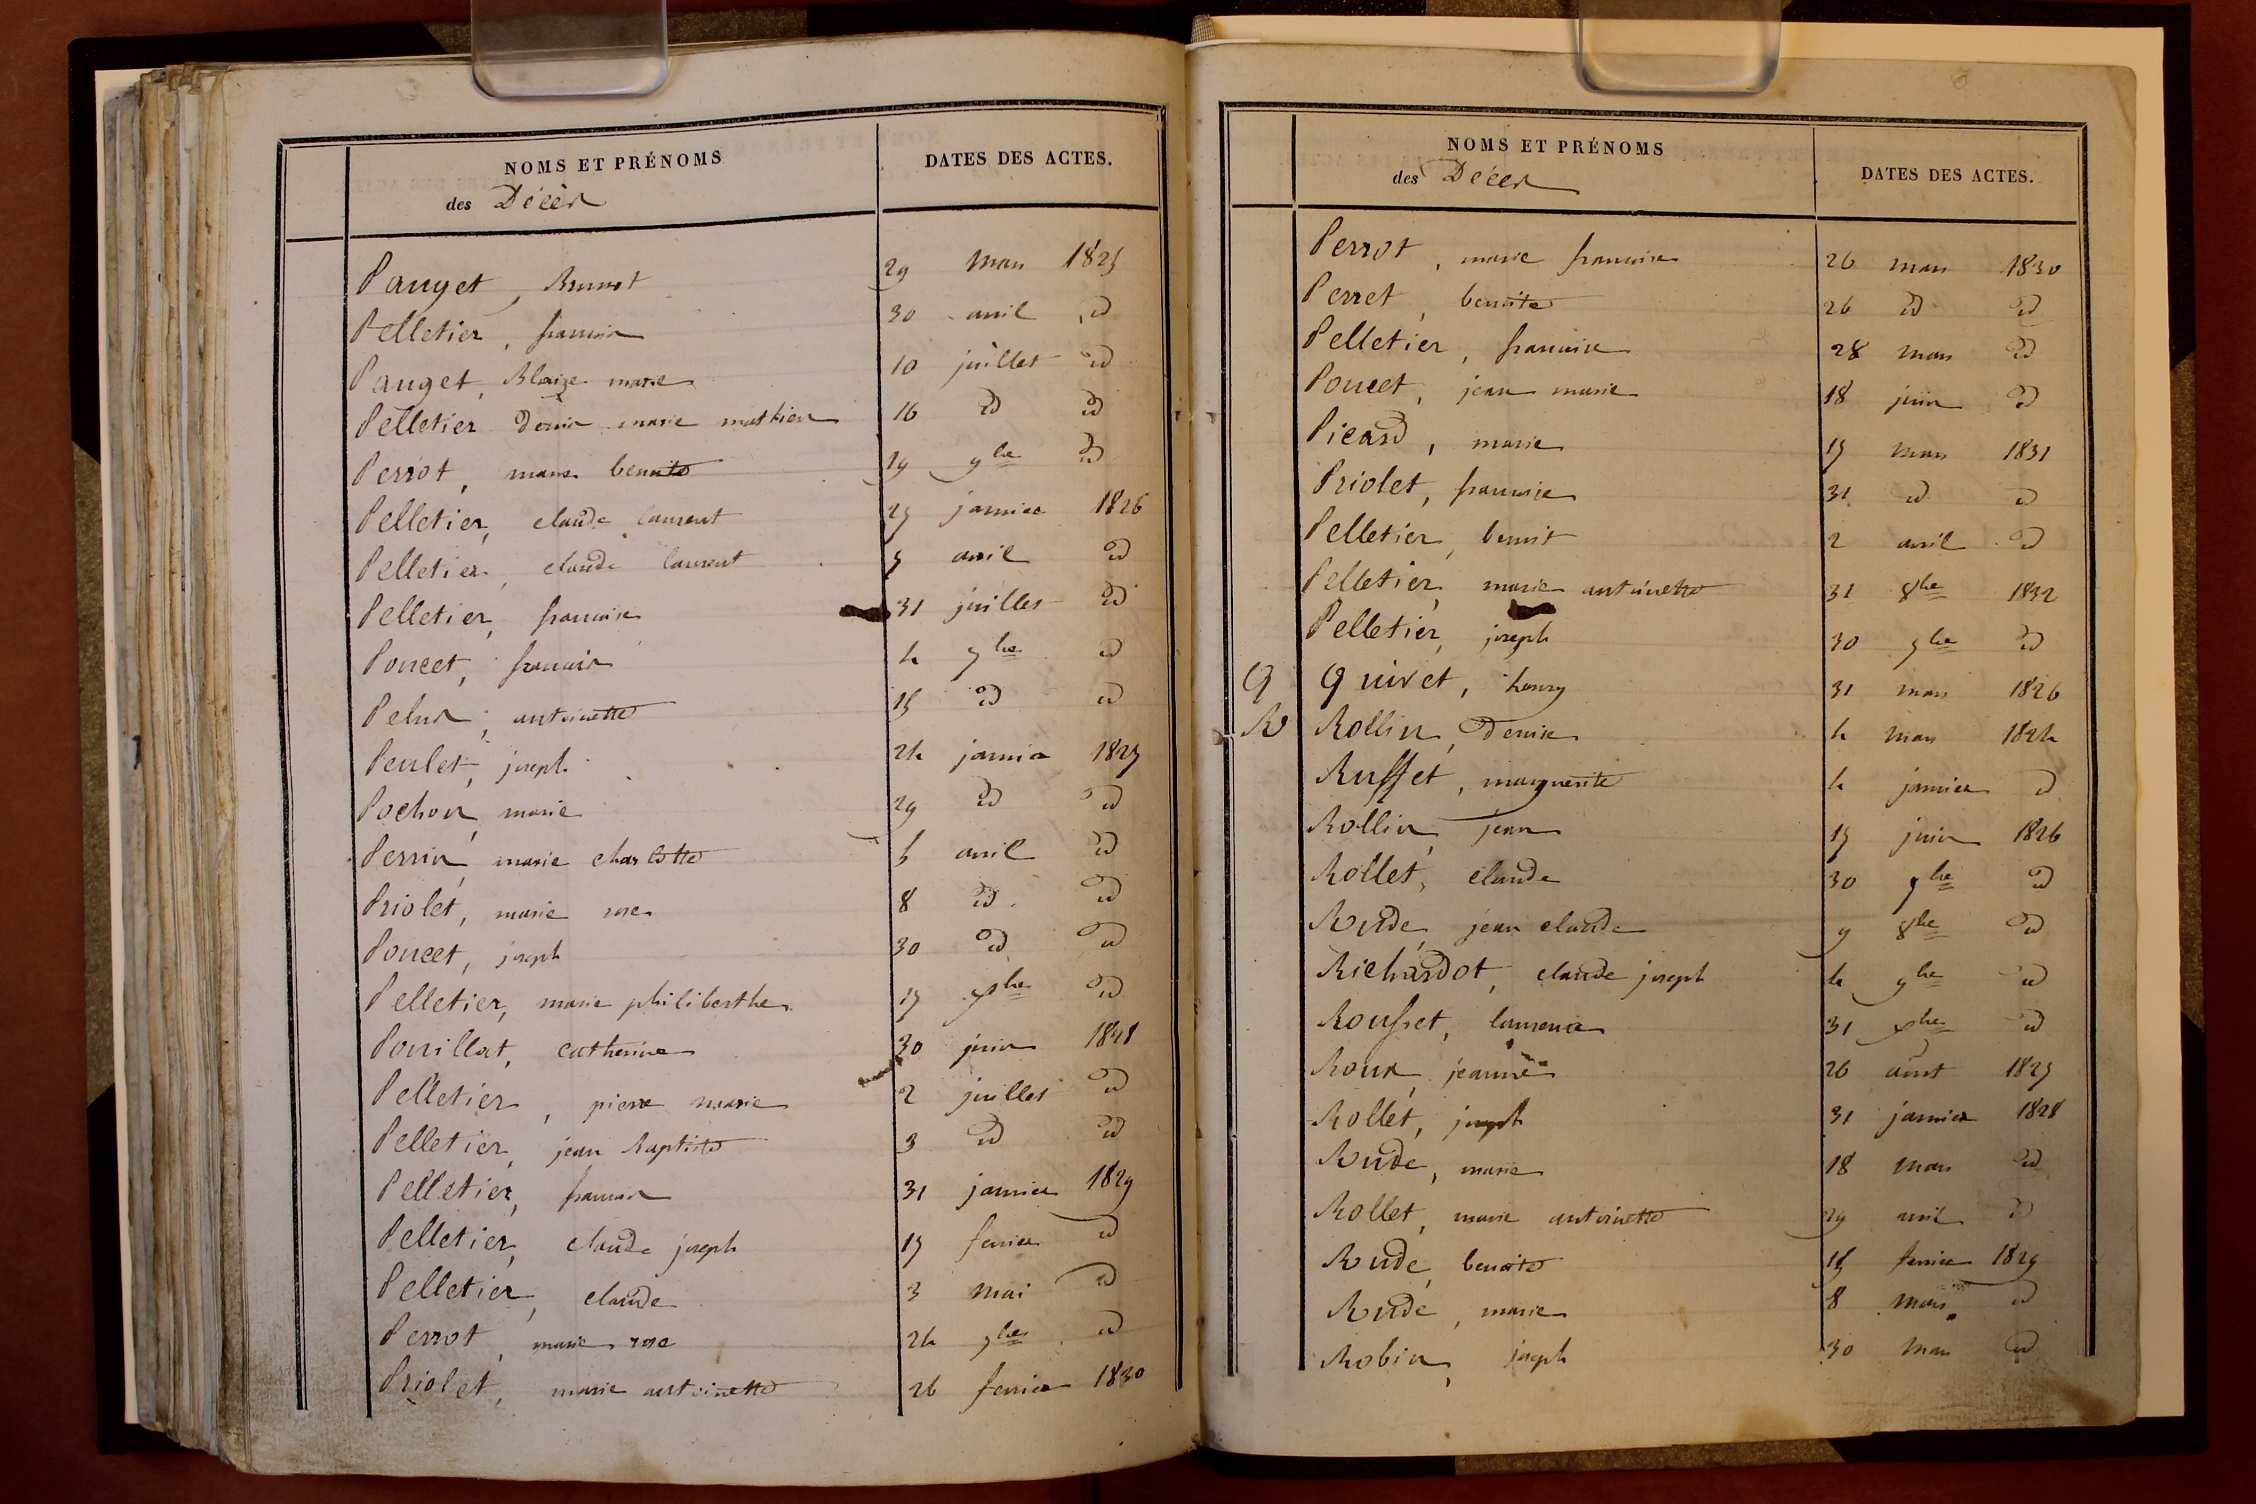 NOMS ET PRÉNOMS
des Décès
DATES DES ACTES.
Pauget, Benoit 29 mars 1825
Pelletier, francois 30 avril id
Pauget, Blaize marie 10 juillet id
Pelletier Denis marie mathieu 16 id id
Perrot, marie benoite 19 9bre id
Pelletier, claude laurent 25 janvier 1826
Pelletier, claude laurent 5 avril id
Pelletier, francoise 31 juillet id
Poncet, francois 4 9bre id
Pelus, antoinette 15 id id
Peulet, joseph 24 janvier 1827
Pochon, marie 29 id id
Perrin, marie charlotte 5 avril id
Priolet, marie rose 8 id id
Poncet, joseph 30 id id
Pelletier, marie philiberthe 17 xbre id
Pouillat, catherine 30 juin 1828
Pelletier, pierre marie 2 juillet id
Pelletier, jean Baptiste 3 id id
Pelletier, francois 31 janvier 1829
Pelletier, claude joseph 15 fevrier id
Pelletier, claude 3 mai id
Perrot, marie rose 24 9bre id
Priolet, marie antoinette 26 fevrier 1830
NOMS ET PRÉNOMS
des Décès
DATES DES ACTES.
Perrot, marie francoise 26 mars 1830
Perret, benoite 26 id id
Pelletier, francoise 28 mars id
Poncet, jean marie 18 juin id
Picard, marie 15 mars 1831
Priolet, francoise 31 id id
Pelletier, benoit 2 avril id
Pelletier, marie antoinette 31 8bre 1832
Pelletier, joseph 30 9bre id
Q Quivet, henry 31 mars 1826
R Rollin, Denise 4 mars 1824
Ruffet, marguerite 4 janvier id
Rollin, jean 15 juin 1826
Rollet, claude 30 7bre id
Rude, jean claude 9 8bre id
Richardot, claude joseph 4 9bre id
Rousset, laurence 31 xbre id
Roux, jeanne 26 aout 1827
Rollet, joseph 31 janvier 1828
Rude, marie 18 mars id
Rollet, marie antoinette 29 avril id
Rude, benoite 15 fevrier 1829
Rude, marie 8 mars id
Robin, joseph 30 mars id